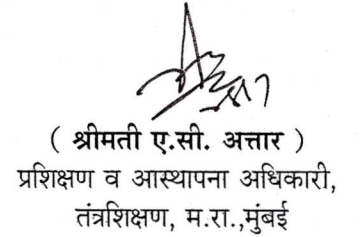 ( श्रीमती ए.सी. अत्तार )
प्रशिक्षण व आस्थापना अधिकारी,
तंत्रशिक्षण, म.रा.,मुंबई